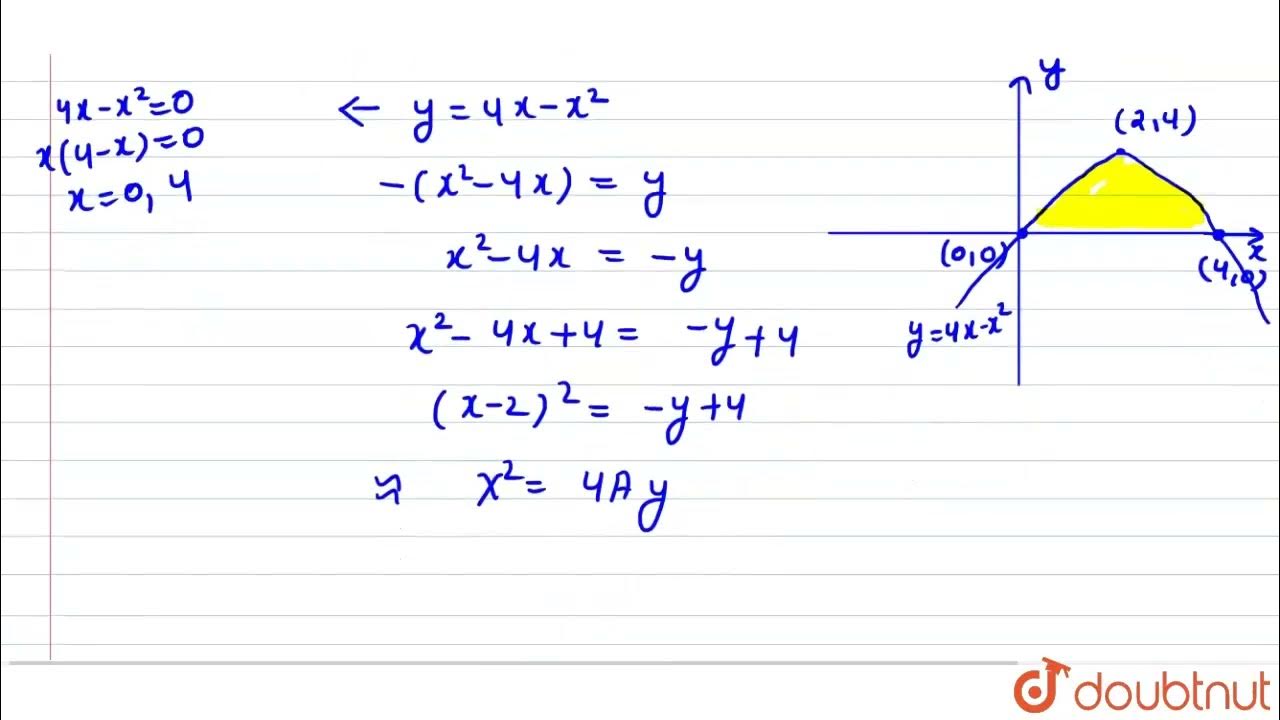 4x-x²=0
x(4-x)=0
x=0, 4
← y = 4x-x²
-(x²-4x) = y
x²-4x = -y
x²- 4x+4 = -y+4
(x-2)² = -y+4
≈ X² = 4A y
y
(2,4)
(0,0)
x
(4,0)
y=4x-x²
doubtnut